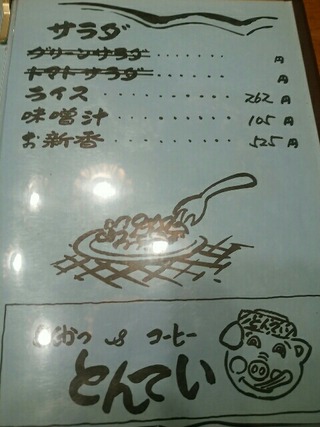 サラダ
グリーンサラダ ......... 円
トマトサラダ ......... 円
ライス ............ 262 円
味噌汁 ......... 105 円
お新香 ......... 525 円
とんてい
コーヒー
とんてい